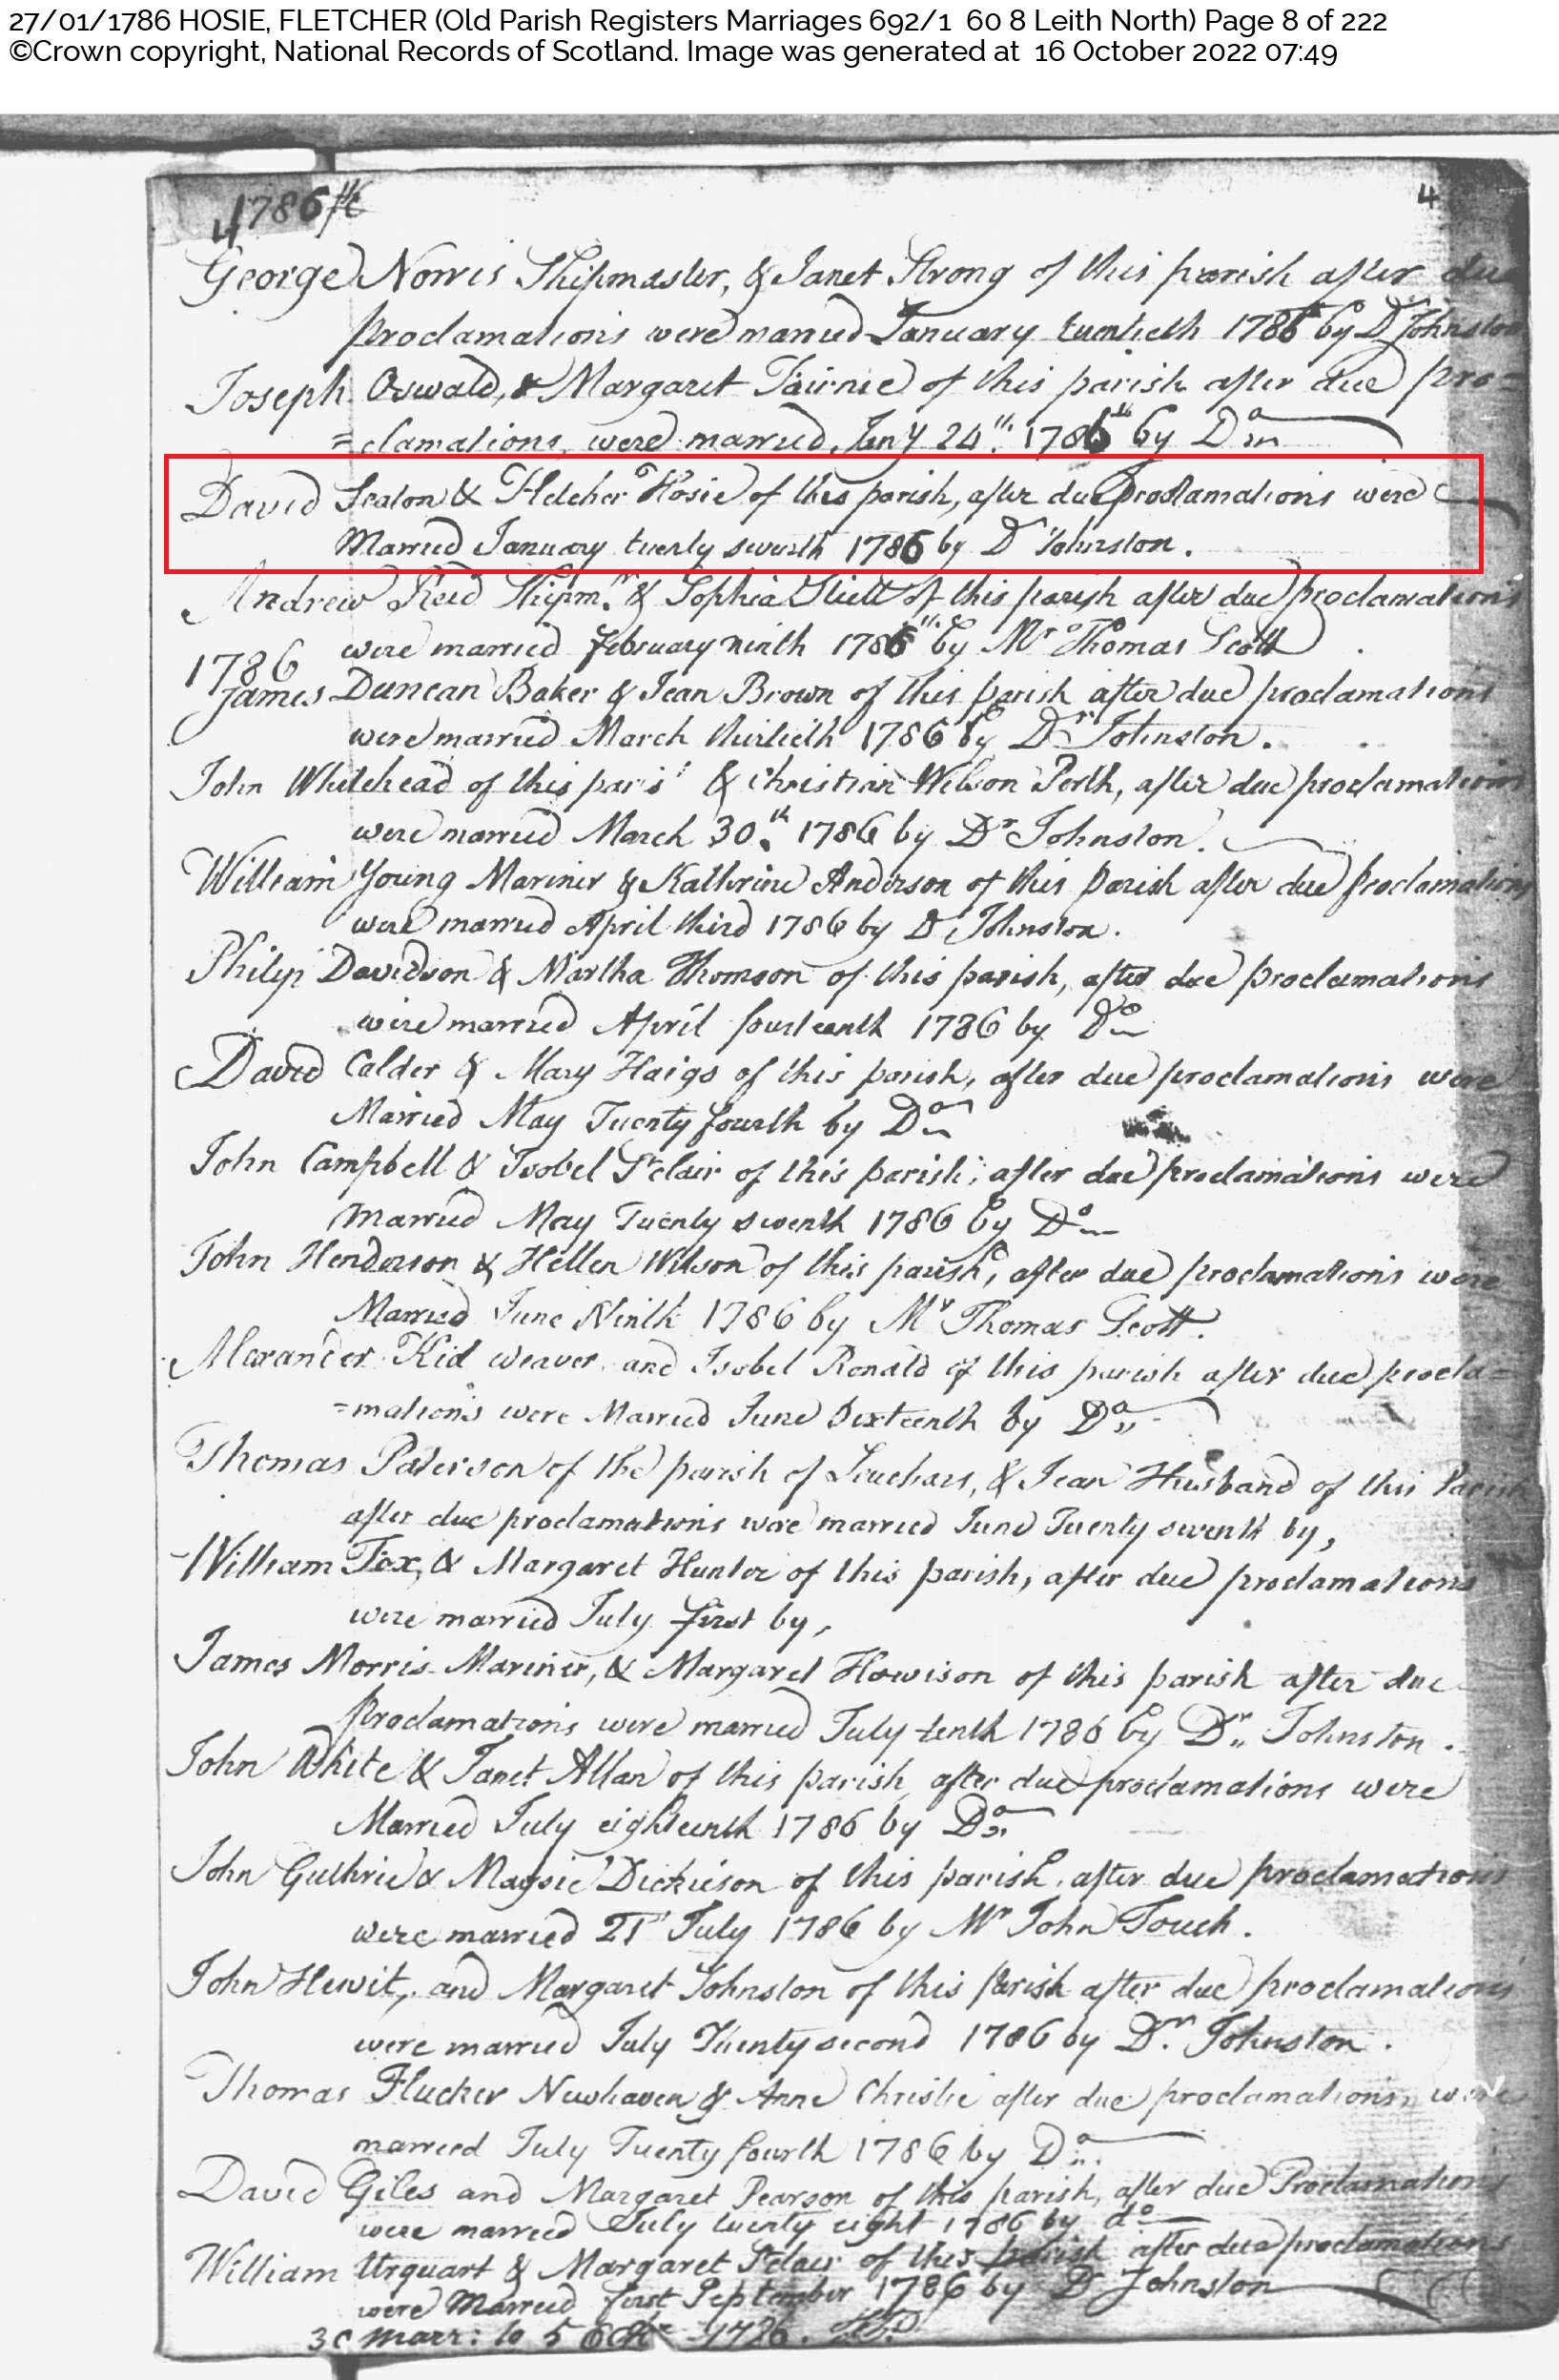 27/01/1786 HOSIE, FLETCHER (Old Parish Registers Marriages 692/1 60 8 Leith North) Page 8 of 222
©Crown copyright, National Records of Scotland. Image was generated at 16 October 2022 07:49
1786 4
George Norris Shipmaster, & Janet Strong of this parish after due
proclamations were married January twentieth 1786 by Dr Johnston
Joseph Oswald, & Margaret Fairnie of this parish after due pro=
=clamations, were married, Jany 24th 1786th by Do
David Seaton & Fletcher Hosie of this parish, after due proclamations were
Married January twenty seventh 1786 by Dr Johnston.
Andrew Reid Shipmr & Sophia of this parish after due proclamations
were married February ninth 1786th by Mr Thomas Scott
1786
James Duncan Baker & Jean Brown of this parish after due proclamations
were married March thirtieth 1786 by Dr Johnston.
John Whitehead of this & Christian Wilson Perth, after due proclamations
were married March 30th 1786 by Dr Johnston.
William Young Mariner & Kathrine Anderson of this parish after due proclamations
were married April third 1786 by D Johnston.
Philip Davidson & Martha Thomson of this parish, after due proclamations
were married April fourteenth 1786 by Do
David Calder & Mary Haigs of this parish, after due proclamations were
Married May Twenty fourth by Do
John Campbell & Isobel St clair of this parish, after due proclamations were
Married May Twenty seventh 1786 by Do
John Henderson & Hellen Wilson of this parish, after due proclamations were
Married June Ninth 1786 by Mr Thomas Scott.
Alexander Kid weaver and Isobel Ronald of this parish after due procla=
=mations were Married June Sixteenth by Do
Thomas Paterson of the parish of Leuchars, & Jean Husband of this Parish
after due proclamations were married June Twenty seventh by,
William Fox, & Margaret Hunter of this parish, after due proclamations
were married July first by,
James Morris Mariner, & Margaret Howison of this parish after due
proclamations were married July tenth 1786 by Dr Johnston.
John White & Janet Allan of this parish after due proclamations were
Married July eighteenth 1786 by Do
John Guthrie & Magsie Dickieson of this parish, after due proclamations
were married 21st July 1786 by Mr John Touch.
John Hewit, and Margaret Johnston of this parish after due proclamations
were married July Twenty second 1786 by Dr. Johnston.
Thomas Flucker Newhaven & Anne Christie after due proclamations, were
married July Twenty fourth 1786 by Do
David Giles and Margaret Pearson of this parish, after due Proclamations
were married July twenty eight 1786 by do
William Urquart & Margaret St clair of this parish after due proclamations
were Married first September 1786 by Dr Johnston
marr: to 5